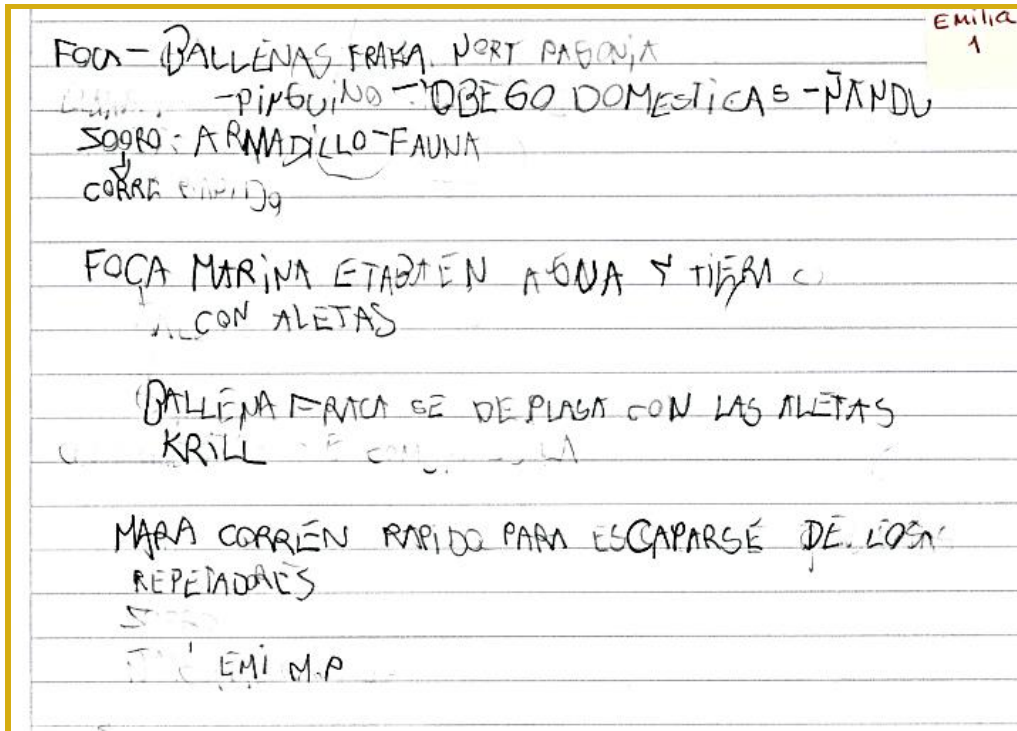 EMilia
1
FOCA - BALLENAS FRAKA. NORT PAGONIA
- PINGUINO - OBEGO DOMESTICAS - ÑANDU
SOGRO: ARMADILLO - FAUNA
CORRE
FOCA MARINA ETABA EN AGUA Y TIERA
CON ALETAS
BALLENA FRACA SE DEPLASA CON LAS ALETAS
KRILL
MARA CORREN RAPIDO PARA ESCAPARSE DE LOS
REPETADORES
EMI M.P